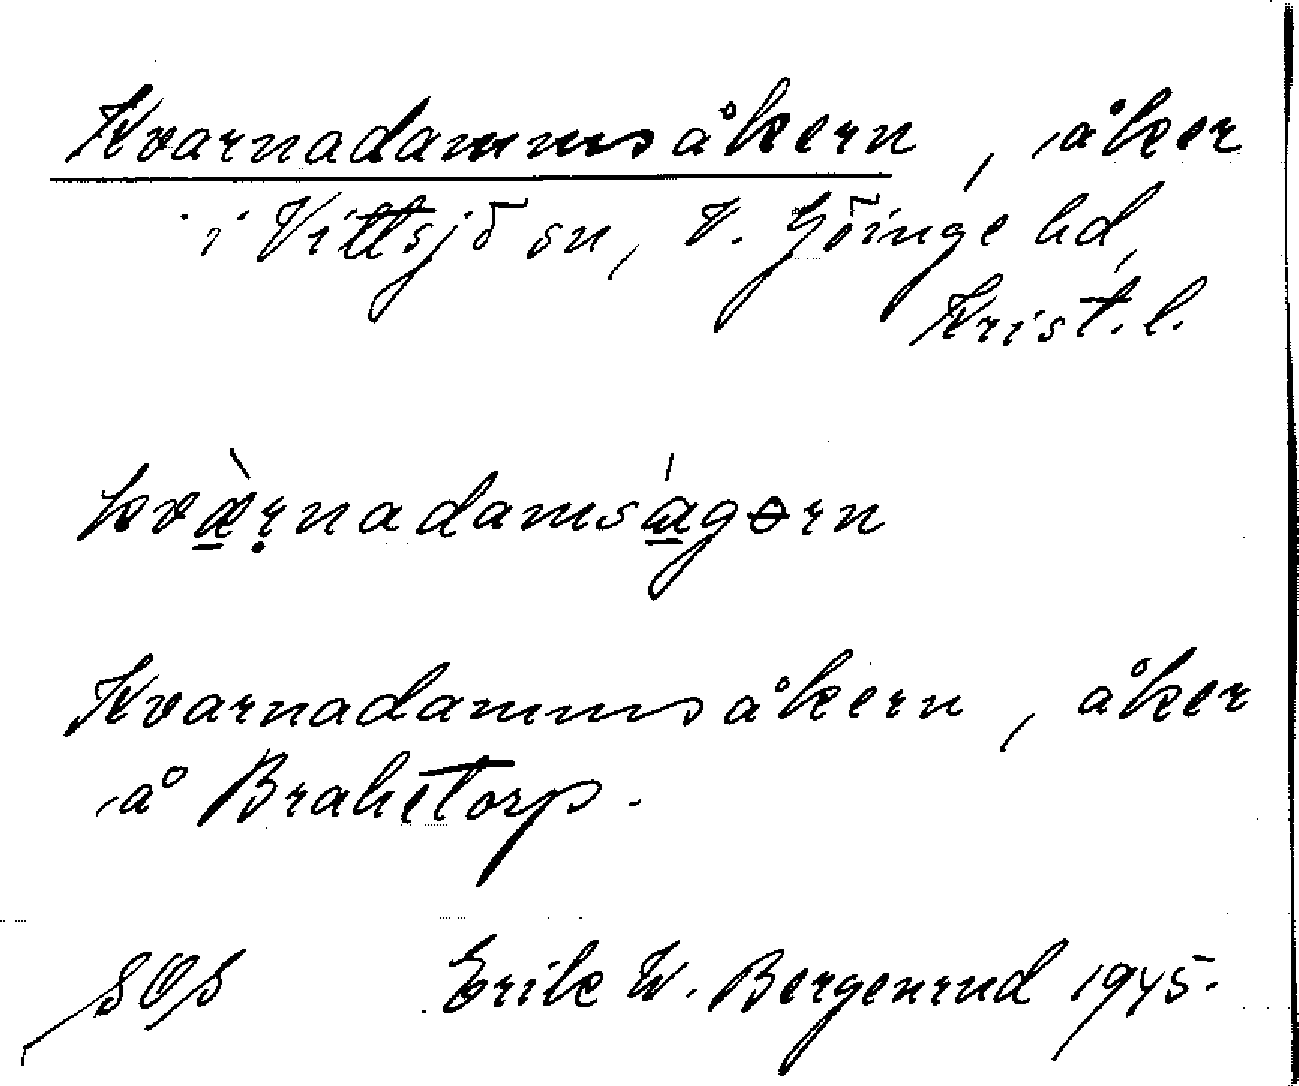 Kvarnadammsåkern, åker
i Vittsjö sn, V. Göinge hd,
Krist. l.
kvæ̀ṛnadamságɵrn
Kvarnadammsåkern, åker
å Brahetorp.
Erik W. Bergenrud 1945.